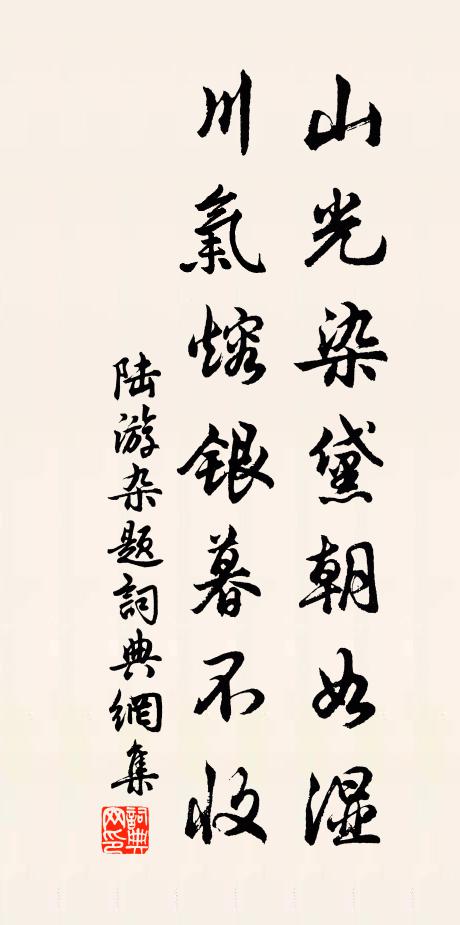 山光染黛朝如湿
川氣熔銀暮不收
陆游杂题詞典網集
詞典網印